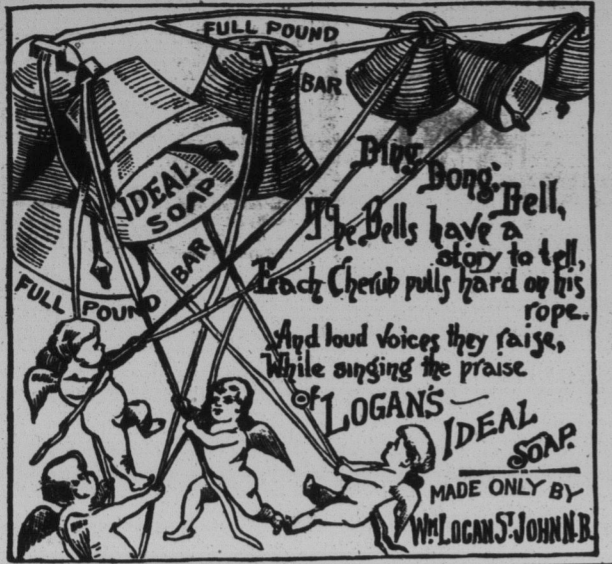 FULL POUND
BAR
IDEAL
SOAP
BAR
FULL POUND
Ding,
Dong,
Bell,
The Bells have a
story to tell,
Each Cherub pulls hard on his
rope.
And loud voices they raise,
While singing the praise
of LOGAN'S
IDEAL
SOAP.
MADE ONLY BY
WM LOGAN ST. JOHN N.B.